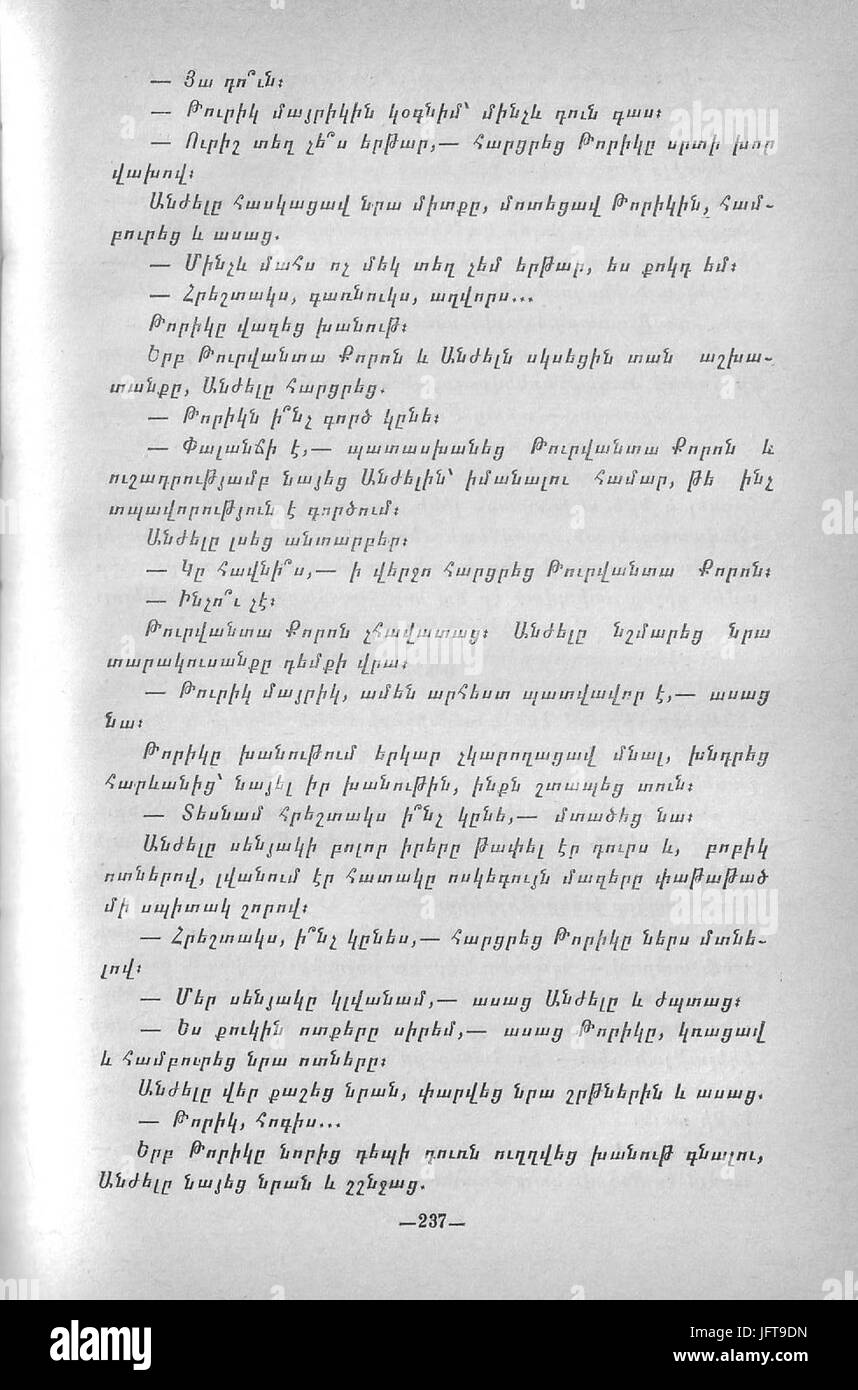 — Յա դո՞ւն։
— Թուրիկ մայրիկին կօգնիմ՝ մինչև դուն գաս։
— Ուրիշ տեղ չե՞ս երթար,— հարցրեց Թորիկը սրտի խոր
վախով։
Անժելը հասկացավ նրա միտքը, մոտեցավ Թորիկին, համ-
բուրեց և ասաց.
— Մինչև մահս ոչ մեկ տեղ չեմ երթար, ես քուկդ եմ։
— Հրեշտակս, գառնուկս, աղվորս...
Թորիկը վազեց խանութ։
Երբ Թուրվանտա Քորոն և Անժելն սկսեցին տան աշխա-
տանքը, Անժելը հարցրեց.
— Թորիկն ի՞նչ գործ կընե։
— Փալանճի է,— պատասխանեց Թուրվանտա Քորոն և
ուշադրությամբ նայեց Անժելին՝ իմանալու համար, թե ինչ
տպավորություն է գործում։
Անժելը լսեց անտարբեր։
— Կը հավնի՞ս,— ի վերջո հարցրեց Թուրվանտա Քորոն։
— Ինչո՞ւ չէ։
Թուրվանտա Քորոն չհավատաց։ Անժելը նշմարեց նրա
տարակուսանքը դեմքի վրա։
— Թուրիկ մայրիկ, ամեն արհեստ պատվավոր է,— ասաց
նա։
Թորիկը խանութում երկար չկարողացավ մնալ, խնդրեց
հարևանից՝ նայել իր խանութին, ինքն շտապեց տուն։
— Տեսնամ հրեշտակս ի՞նչ կընե,— մտածեց նա։
Անժելը սենյակի բոլոր իրերը թափել էր դուրս և, բոբիկ
ոտներով, լվանում էր հատակը ոսկեգույն մազերը փաթաթած
մի սպիտակ շորով։
— Հրեշտակս, ի՞նչ կընես,— հարցրեց Թորիկը ներս մտնե-
լով։
— Մեր սենյակը կլվանամ,— ասաց Անժելը և ժպտաց։
— Ես քուկին ոտքերը սիրեմ,— ասաց Թորիկը, կռացավ
և համբուրեց նրա ոտները։
Անժելը վեր քաշեց նրան, փարվեց նրա շրթներին և ասաց.
— Թորիկ, հոգիս...
Երբ Թորիկը նորից դեպի դուռն ուղղվեց խանութ գնալու,
Անժելը նայեց նրան և շշնջաց.
—237—
alamy
alamy
alamy
alamy
alamy
Image ID: JFT9DN
www.alamy.com